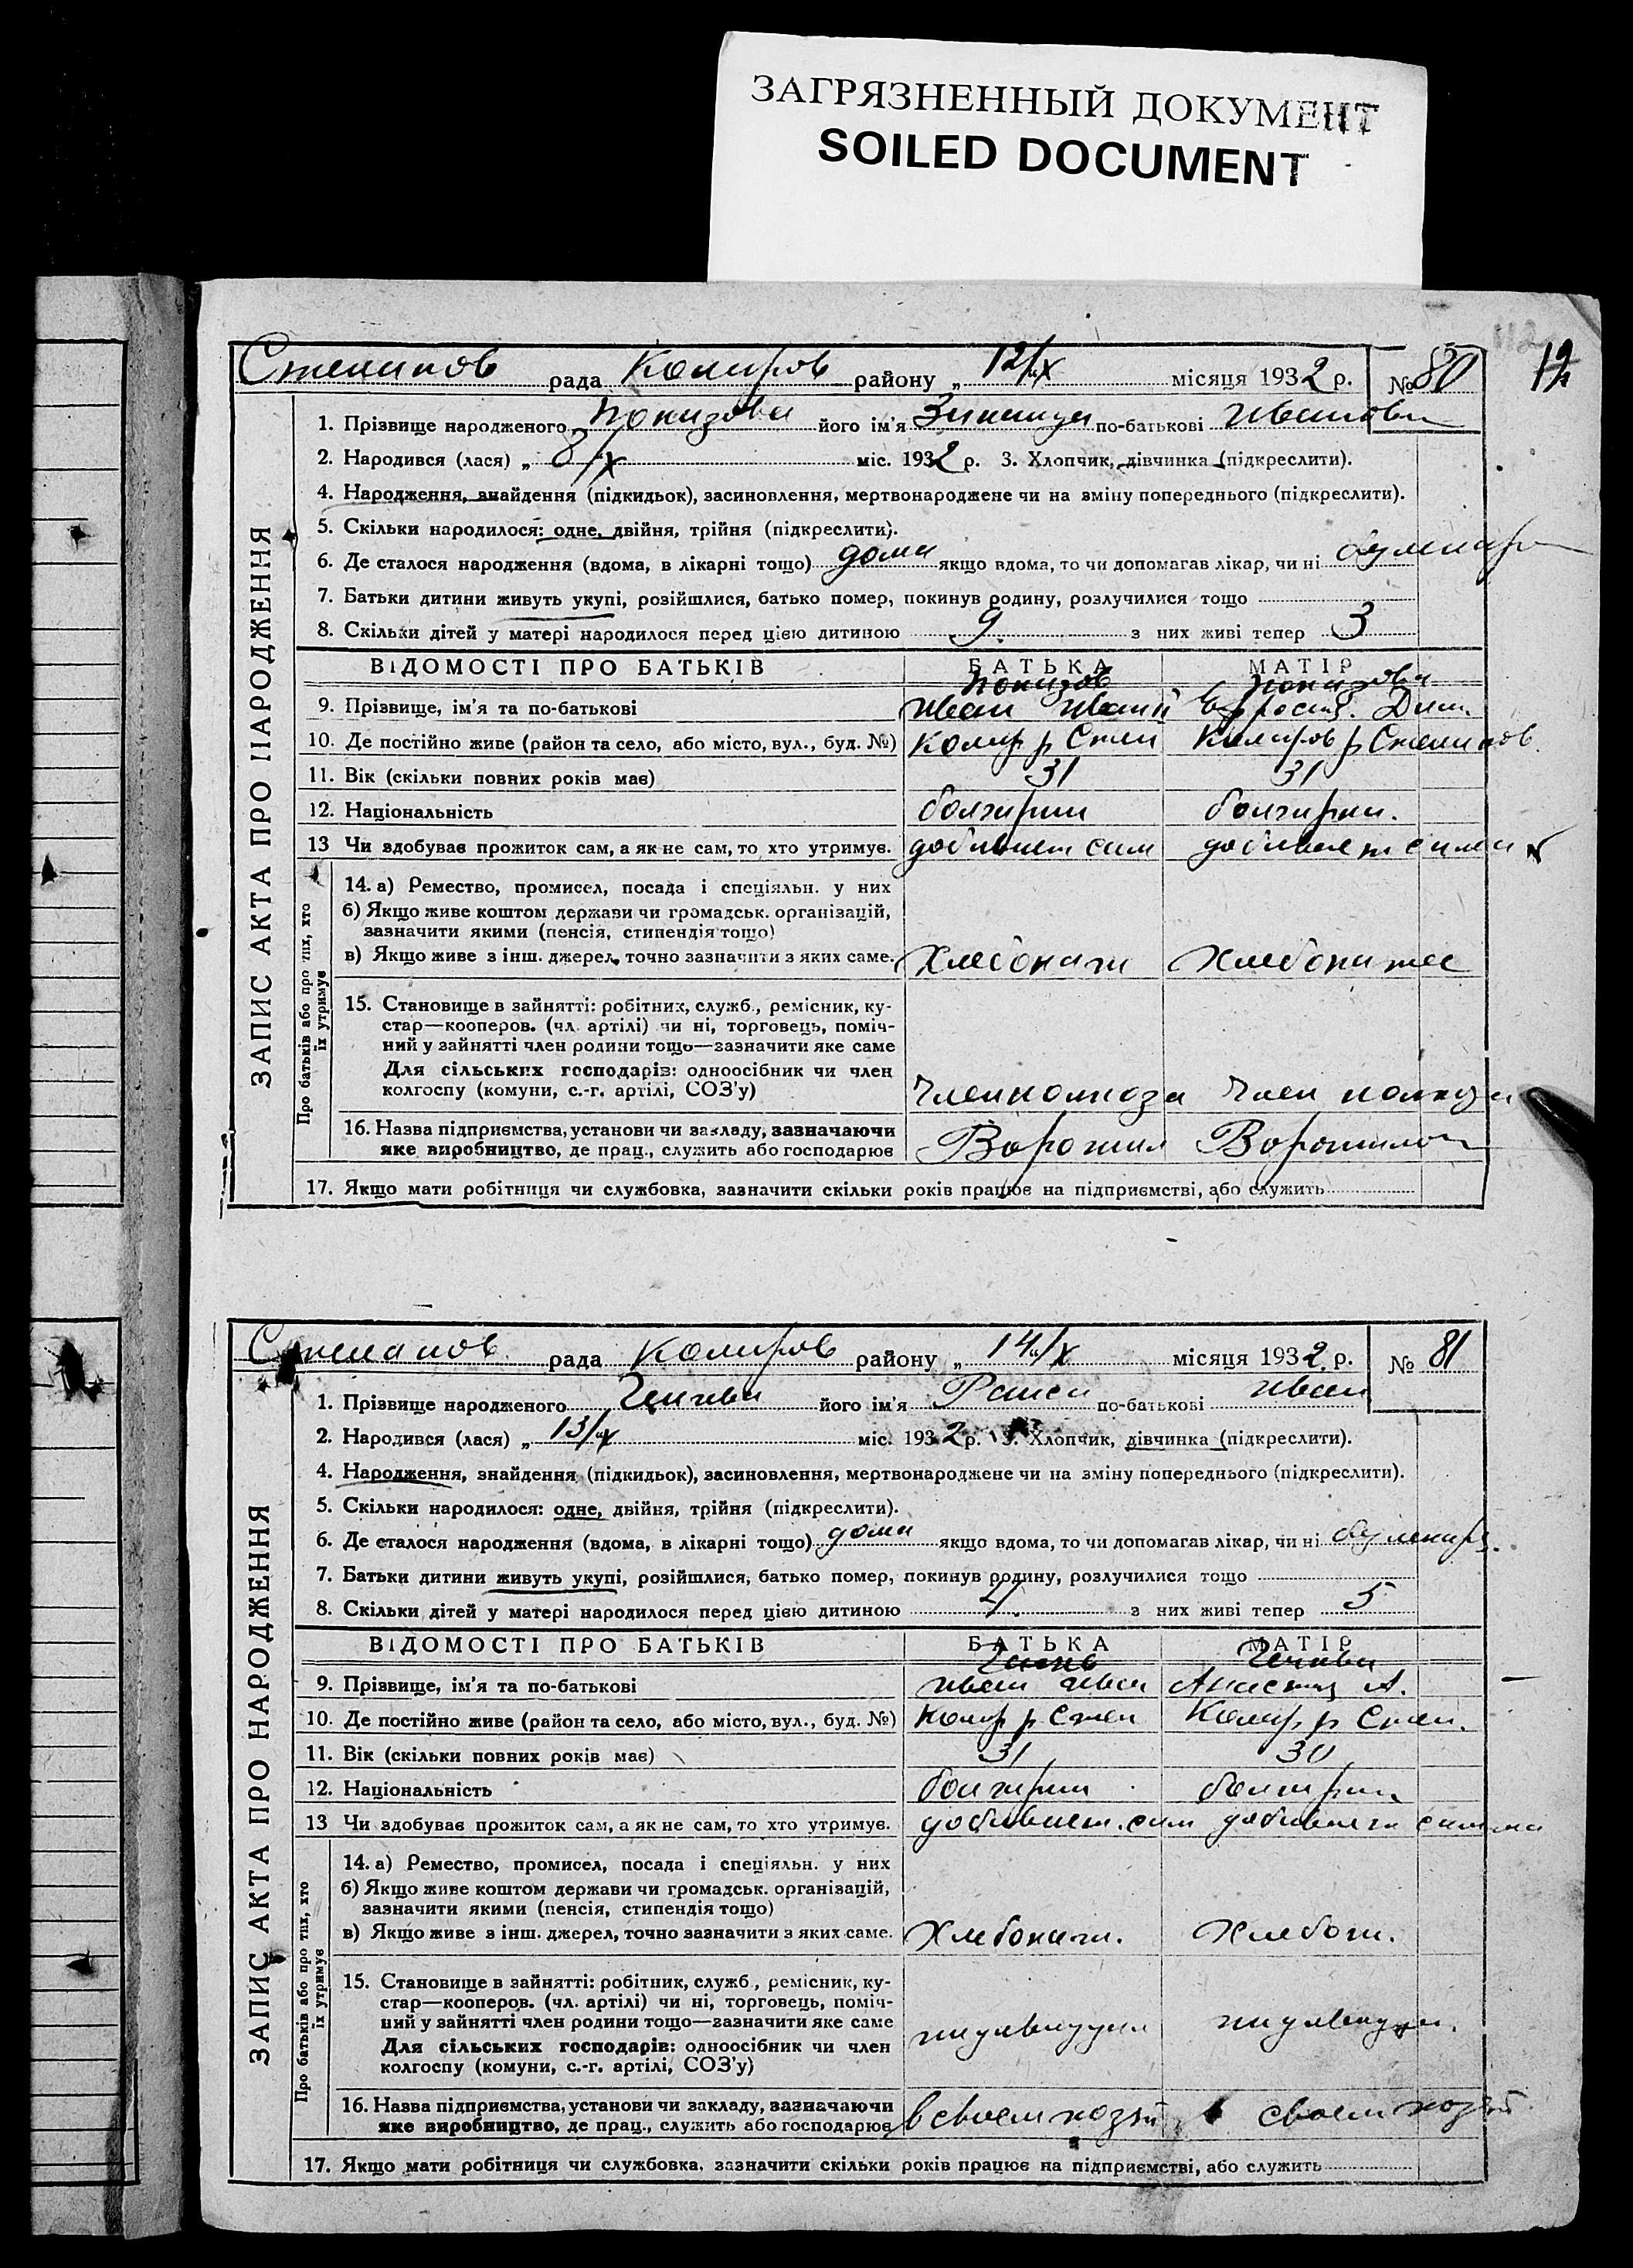 ЗАГРЯЗНЕННЫЙ ДОКУМЕНТ
SOILED DOCUMENT
12
Степанов рада Комиров району „ 12/X місяця 1932 р. № 80
1. Прізвище народженого його ім'я Зинаида по-батькові Иванови
2. Народився (лася) „ 8/X міс. 1932 р. 3. Хлопчик, дівчинка (підкреслити).
4. Народження, знайдення (підкидьок), засиновлення, мертвонароджене чи на зміну попереднього (підкреслити).
5. Скільки народилося: одне, двійня, трійня (підкреслити).
6. Де сталося народження (вдома, в лікарні тощо) дома якщо вдома, то чи допомагав лікар, чи ні
7. Батьки дитини живуть укупі, розійшлися, батько помер, покинув родину, розлучилися тощо
8. Скільки дітей у матері народилося перед цією дитиною 9. з них живі тепер 3
ВІДОМОСТІ ПРО БАТЬКІВ БАТЬКА МАТІР
9. Прізвище, ім'я та по-батькові Иван Дим.
10. Де постійно живе (район та село, або місто, вул., буд. №) Комир р Степ Комиров р Степанов.
11. Вік (скільки повних років має) 31 31
12. Національність болгарин болгарка.
13 Чи здобуває прожиток сам, а як не сам, то хто утримує. добивает сам добивает сама
14. а) Ремество, промисел, посада і спеціяльн. у них
б) Якщо живе коштом держави чи громадськ. організацій,
зазначити якими (пенсія, стипендія тощо)
в) Якщо живе з інш. джерел, точно зазначити з яких саме. Хлебопаш Хлебопашес
15. Становище в зайнятті: робітник, служб., ремісник, ку-
стар—кооперов. (чл. артілі) чи ні, торговець, поміч-
ний у зайнятті член родини тощо—зазначити яке саме
Для сільських господарів: одноосібник чи член
колгоспу (комуни, с.-г. артілі, СОЗ'у) Член колхоза Член колхоза
16. Назва підприємства, установи чи закладу, зазначаючи
яке виробництво, де прац., служить або господарює Ворошил Ворошилов
17. Якщо мати робітниця чи службовка, зазначити скільки років працює на підприємстві, або служить
ЗАПИС АКТА ПРО НАРОДЖЕННЯ
Про батьків або про тих, хто
їх утримує
Степанов рада Комиров району „ 14/X місяця 1932 р. № 81
1. Прізвище народженого його ім'я по-батькові Иван
2. Народився (лася) „ 13/X міс. 1932 р. 3. Хлопчик, дівчинка (підкреслити).
4. Народження, знайдення (підкидьок), засиновлення, мертвонароджене чи на зміну попереднього (підкреслити).
5. Скільки народилося: одне, двійня, трійня (підкреслити).
6. Де сталося народження (вдома, в лікарні тощо) дома якщо вдома, то чи допомагав лікар, чи ні
7. Батьки дитини живуть укупі, розійшлися, батько помер, покинув родину, розлучилися тощо
8. Скільки дітей у матері народилося перед цією дитиною з них живі тепер 5
ВІДОМОСТІ ПРО БАТЬКІВ БАТЬКА МАТІР
9. Прізвище, ім'я та по-батькові Иван Иван Анастаз А.
10. Де постійно живе (район та село, або місто, вул., буд. №) Комир р Степ Комир р Степ.
11. Вік (скільки повних років має) 31 30
12. Національність болгарин болгарка
13 Чи здобуває прожиток сам, а як не сам, то хто утримує. добивает. сам добивает сама
14. а) Ремество, промисел, посада і спеціяльн. у них
б) Якщо живе коштом держави чи громадськ. організацій,
зазначити якими (пенсія, стипендія тощо)
в) Якщо живе з інш. джерел, точно зазначити з яких саме. Хлебопаш. Хлебоп.
15. Становище в зайнятті: робітник, служб., ремісник, ку-
стар—кооперов. (чл. артілі) чи ні, торговець, поміч-
ний у зайнятті член родини тощо—зазначити яке саме
Для сільських господарів: одноосібник чи член
колгоспу (комуни, с.-г. артілі, СОЗ'у)
16. Назва підприємства, установи чи закладу, зазначаючи
яке виробництво, де прац., служить або господарює в своем хозяй в своем хозяй
17. Якщо мати робітниця чи службовка, зазначити скільки років працює на підприємстві, або служить
ЗАПИС АКТА ПРО НАРОДЖЕННЯ
Про батьків або про тих, хто
їх утримує